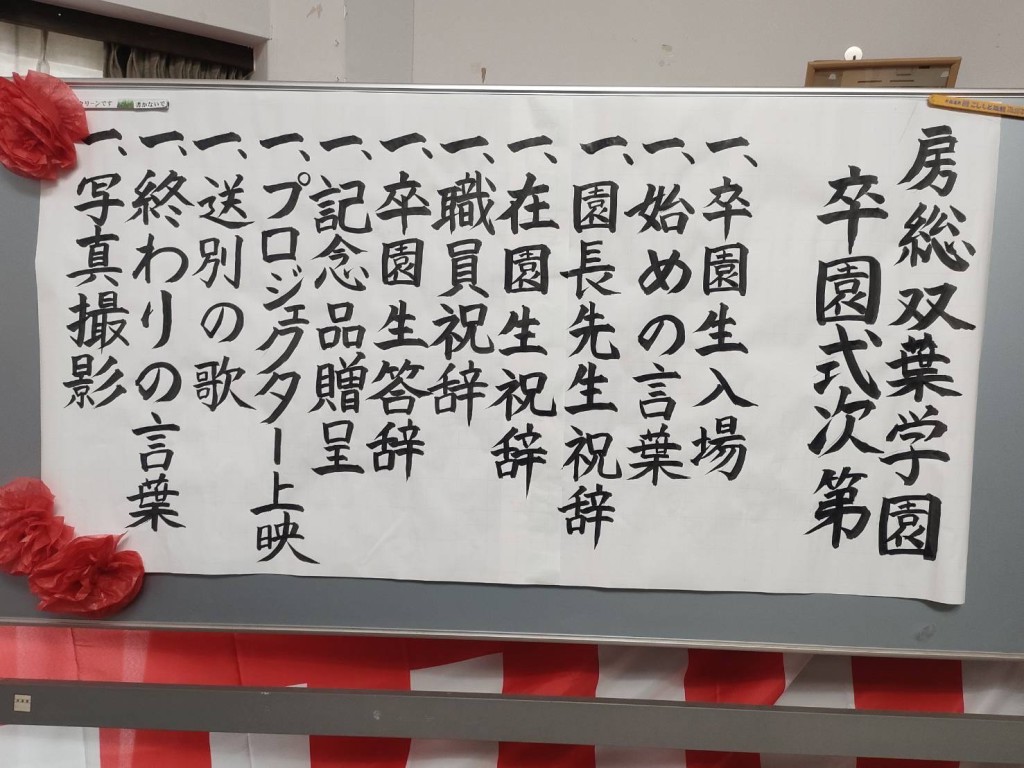 房総双葉学園
卒園式次第
一、卒園生入場
一、始めの言葉
一、園長先生祝辞
一、在園生祝辞
一、職員祝辞
一、卒園生答辞
一、記念品贈呈
一、プロジェクター上映
一、送別の歌
一、終わりの言葉
一、写真撮影